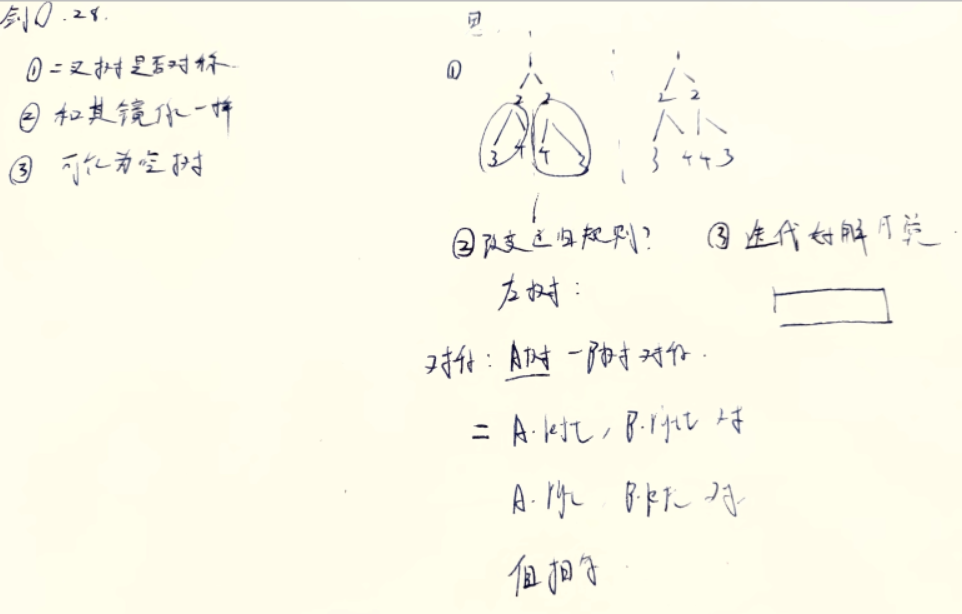 剑O.28.
① 二叉树是否对称.
② 和其镜像一样
③ 可能为空树
思.
①
1
2 2
3 4 4 3
1
2 2
3 4 4 3
② 改变递归规则? ③ 迭代好解
左树:
对称: A树-B树对称.
= A.left, B.right 对
A.right, B.left 对.
值相等.